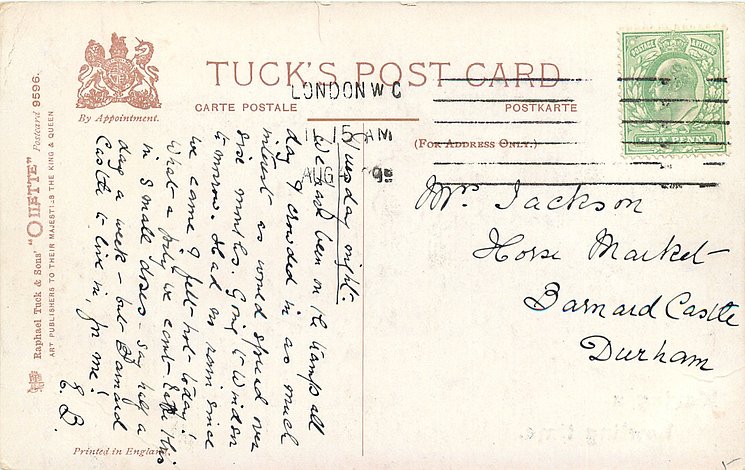 TUCK'S POST CARD
CARTE POSTALE
POSTKARTE
(FOR ADDRESS ONLY.)
By Appointment.
LONDON W C
11 15 AM
AUG 9
POSTAGE
HALFPENNY
Raphael Tuck & Sons' "OILETTE" Postcard 9596.
ART PUBLISHERS TO THEIR MAJESTIES THE KING & QUEEN
Tuesday night.
We have been on the tramp all
day & crowded in as much
interest as would spread over
six months. Going to Windsor
to-morrow. Had no rain since
we came & felt hot to-day!
What a pity we can't take this
in small doses - say half a
day a week - but Barnard
Castle to live in, for me!
E. B.
Mrs Jackson
Horse Market
Barnard Castle
Durham
Printed in England.